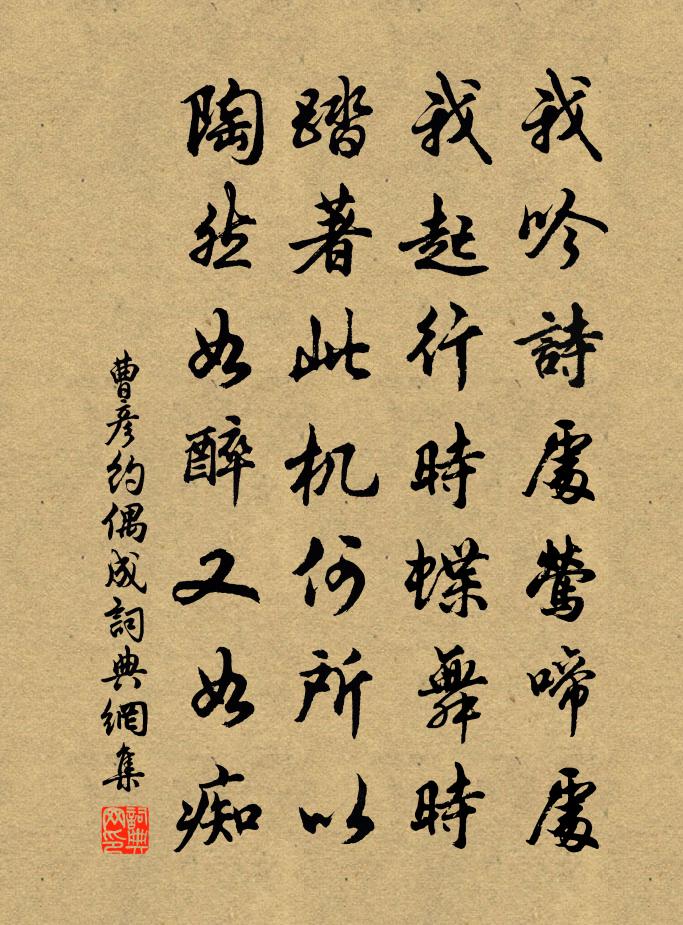 我吟詩處鶯啼處
我起行時蝶舞時
踏著此机何所以
陶然如醉又如痴
曹彦約偶成詞典網集
詞典網印